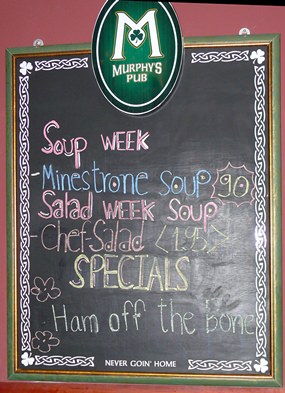 M
MURPHY'S
PUB
Soup WEEK
-Minestrone Soup {90}
Salad WEEK Soup
-Chef-Salad <1.95>
SPECIALS
Ham off the bone
NEVER GOIN' HOME